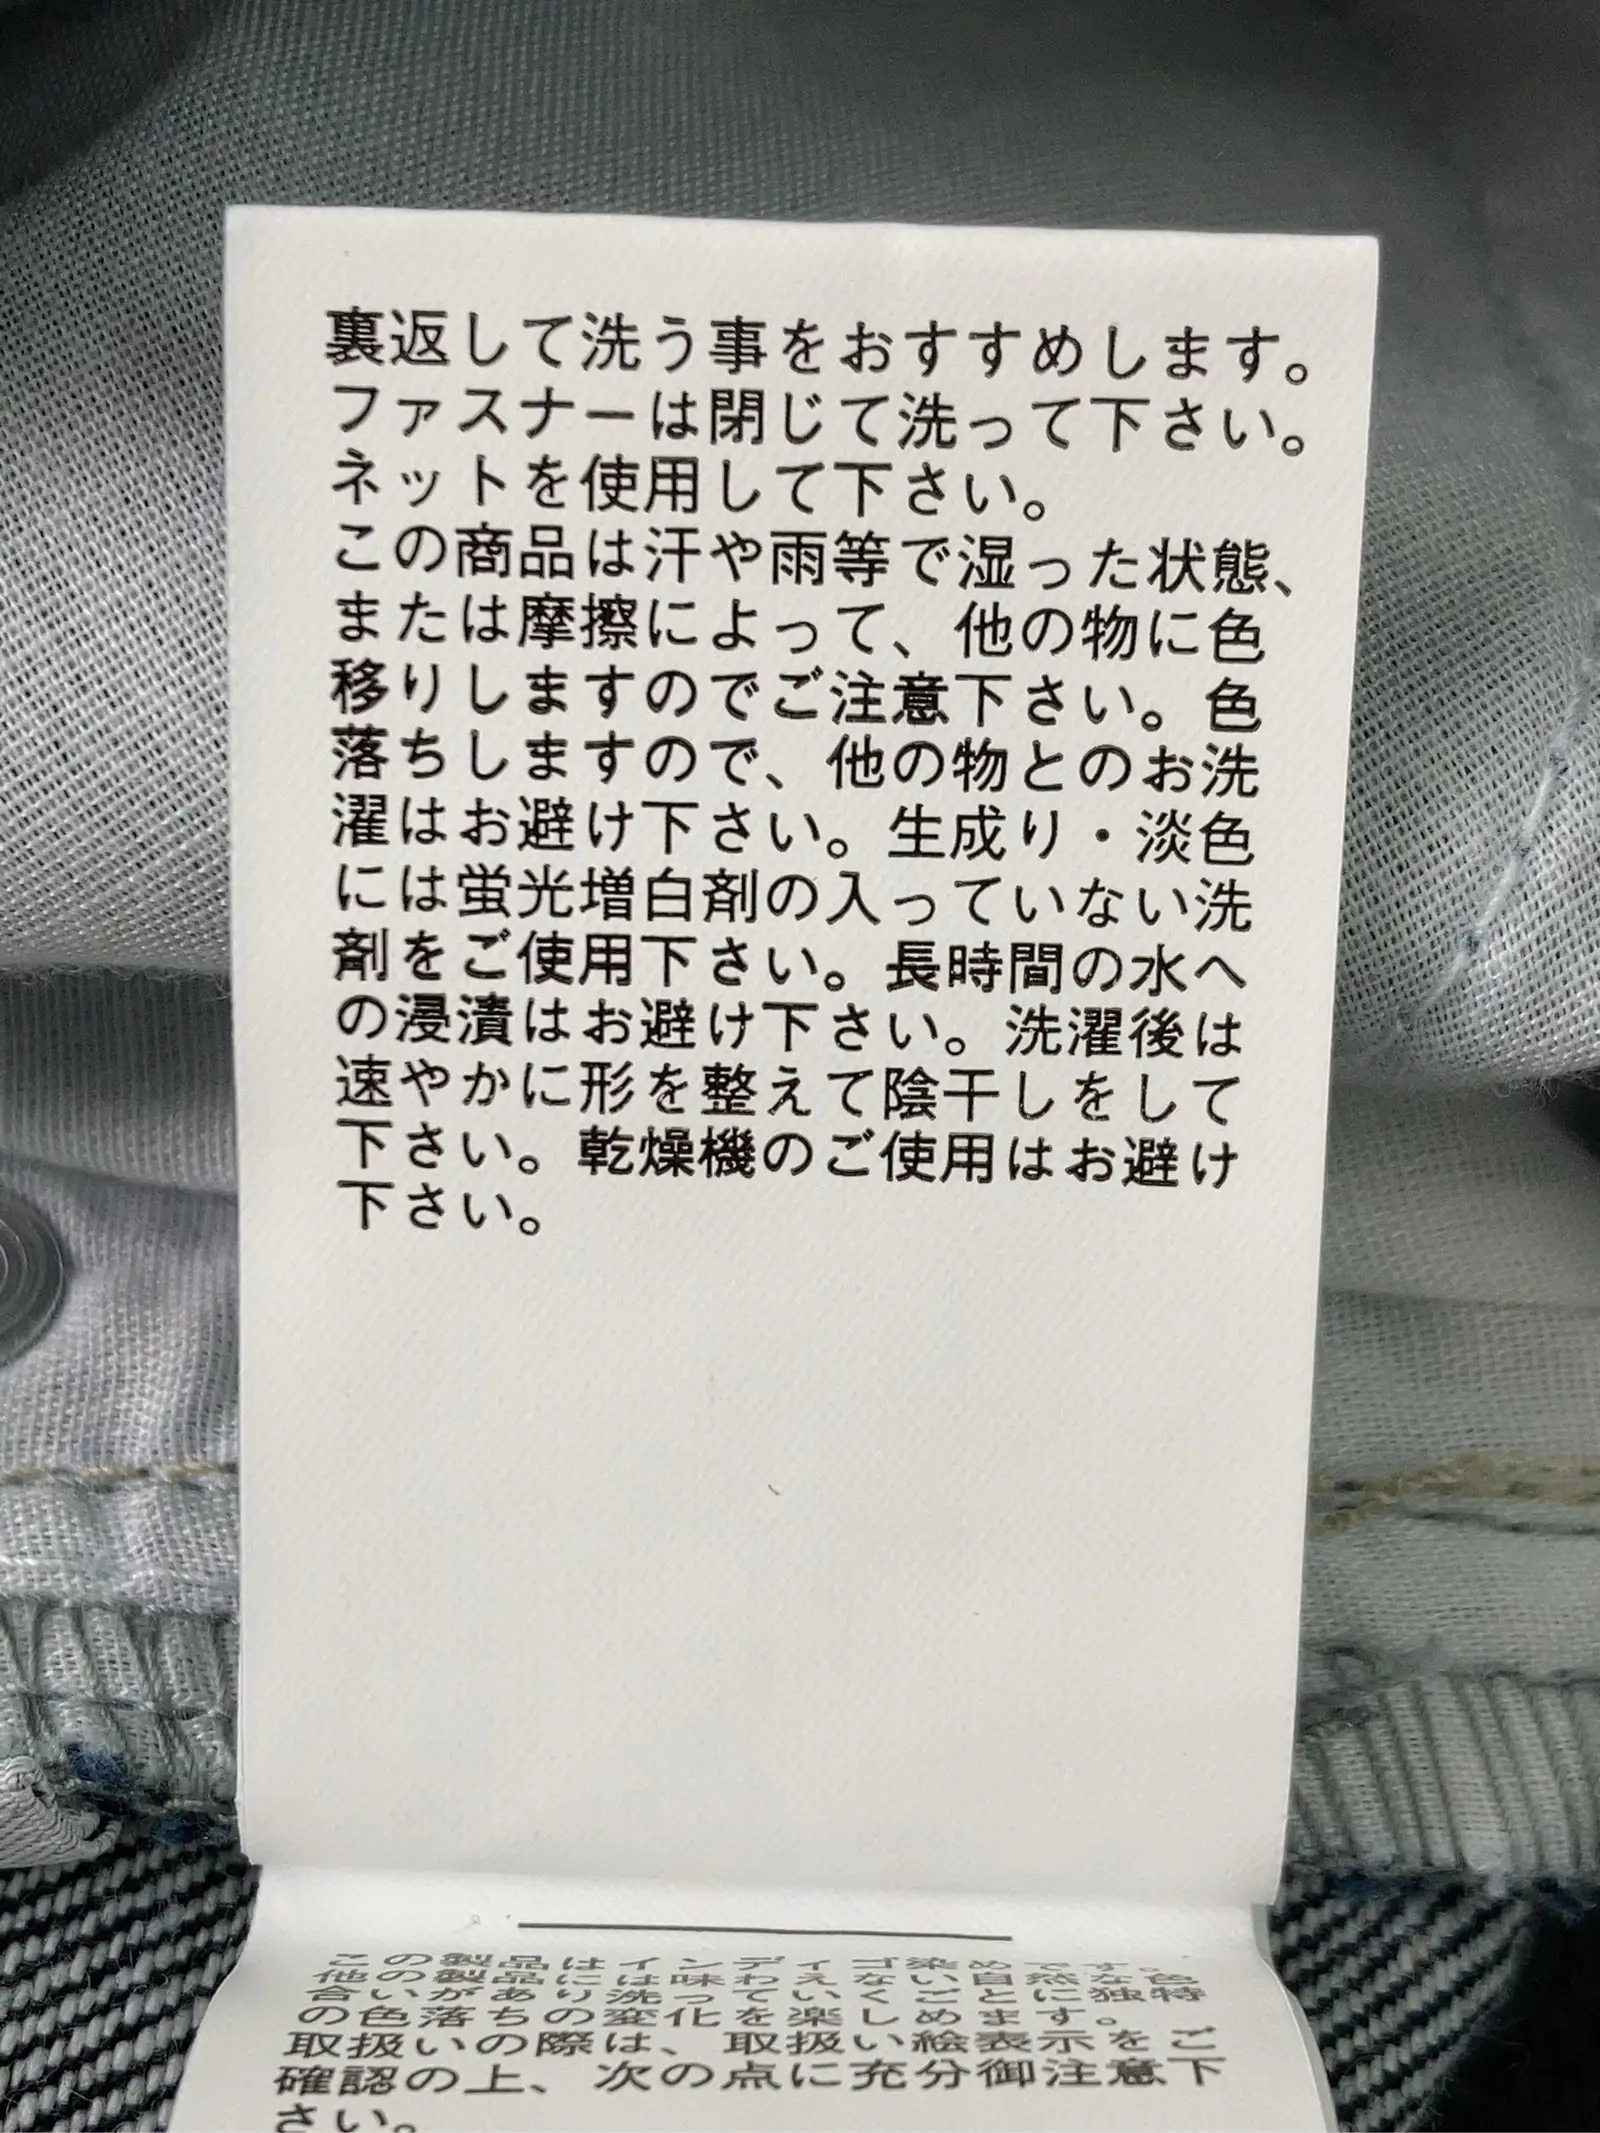 裏返して洗う事をおすすめします。
ファスナーは閉じて洗って下さい。
ネットを使用して下さい。
この商品は汗や雨等で湿った状態、
または摩擦によって、他の物に色
移りしますのでご注意下さい。色
落ちしますので、他の物とのお洗
濯はお避け下さい。生成り・淡色
には蛍光増白剤の入っていない洗
剤をご使用下さい。長時間の水へ
の浸漬はお避け下さい。洗濯後は
速やかに形を整えて陰干しをして
下さい。乾燥機のご使用はお避け
下さい。
この製品はインディゴ染めです。
他の製品には味わえない自然な色
合いがあり洗っていくごとに独特
の色落ちの変化を楽しめます。
取扱いの際は、取扱い絵表示をご
確認の上、次の点に充分御注意下
さい。